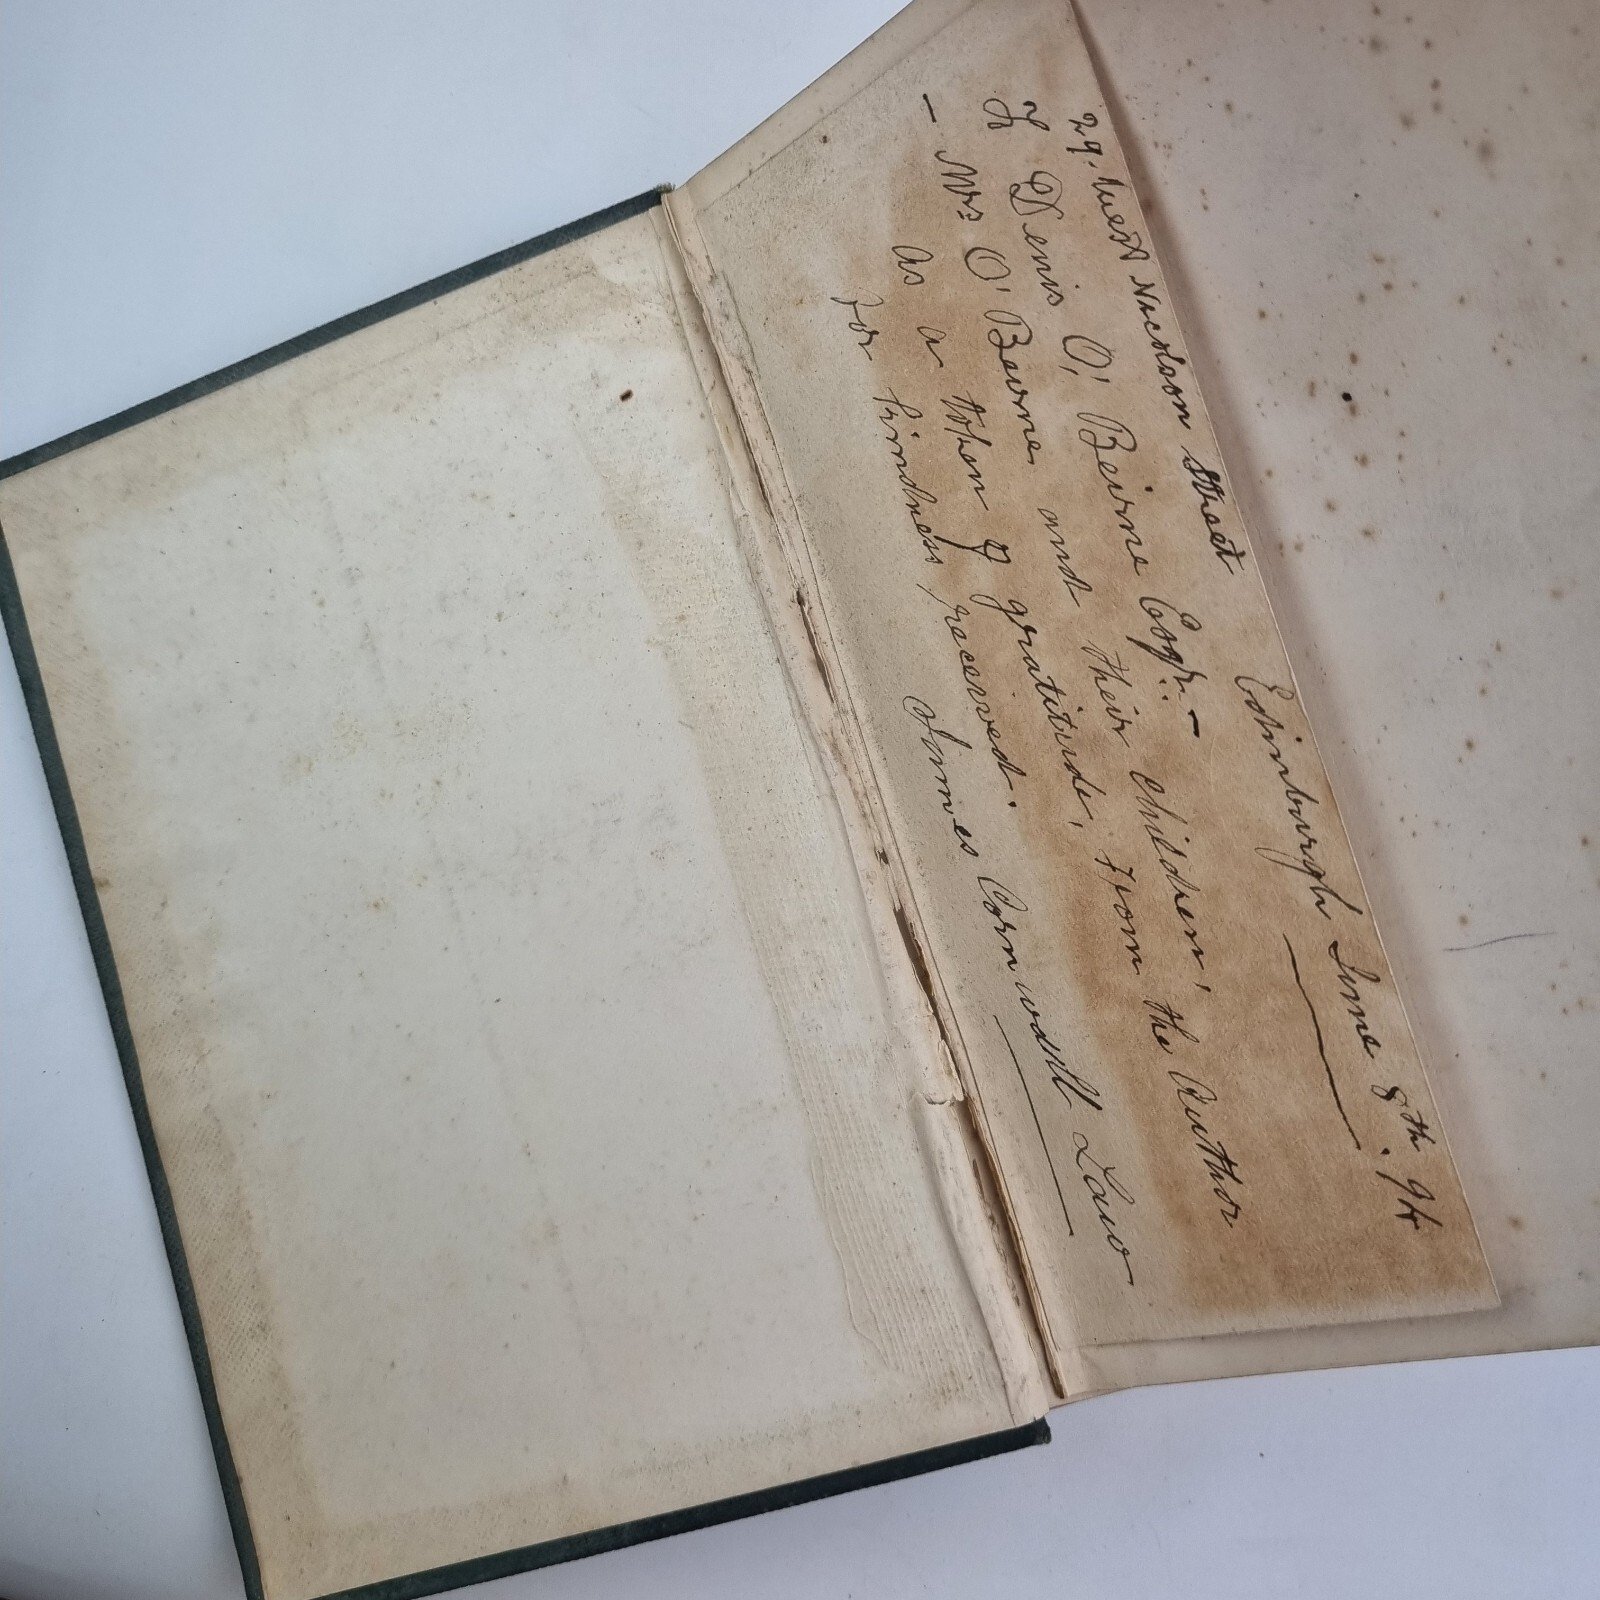 29. West Nicolson Street
Edinburgh June 8th. 94
To Denis O'Beirne Esqr. —
— Mrs O'Beirne, and their children,
as a token of gratitude, from the Author
for kindness received.
James Cornwall Law